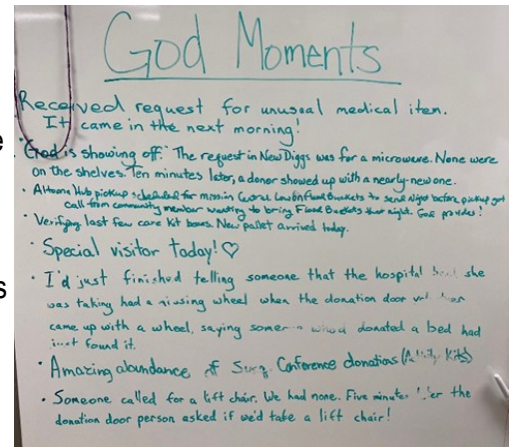 God Moments
Received request for unusual medical item.
It came in the next morning!
• God is showing off: The request in New Diggs was for a microwave. None were
on the shelves. Ten minutes later, a donor showed up with a nearly-new one.
• Altoona Hub pickup scheduled for Mission Central. Low on Flood Buckets to send. Night before pickup got
call from community member wanting to bring Flood Buckets that night. God provides!
• Verifying last few care kit boxes. New pallet arrived today.
• Special visitor today! ♡
• I'd just finished telling someone that the hospital she
was taking had a missing wheel when the donation door
came up with a wheel, saying donated a bed had
just found it.
• Amazing abundance of Conference donations
• Someone called for a lift chair. We had none. Five minutes later the
donation door person asked if we'd take a lift chair!